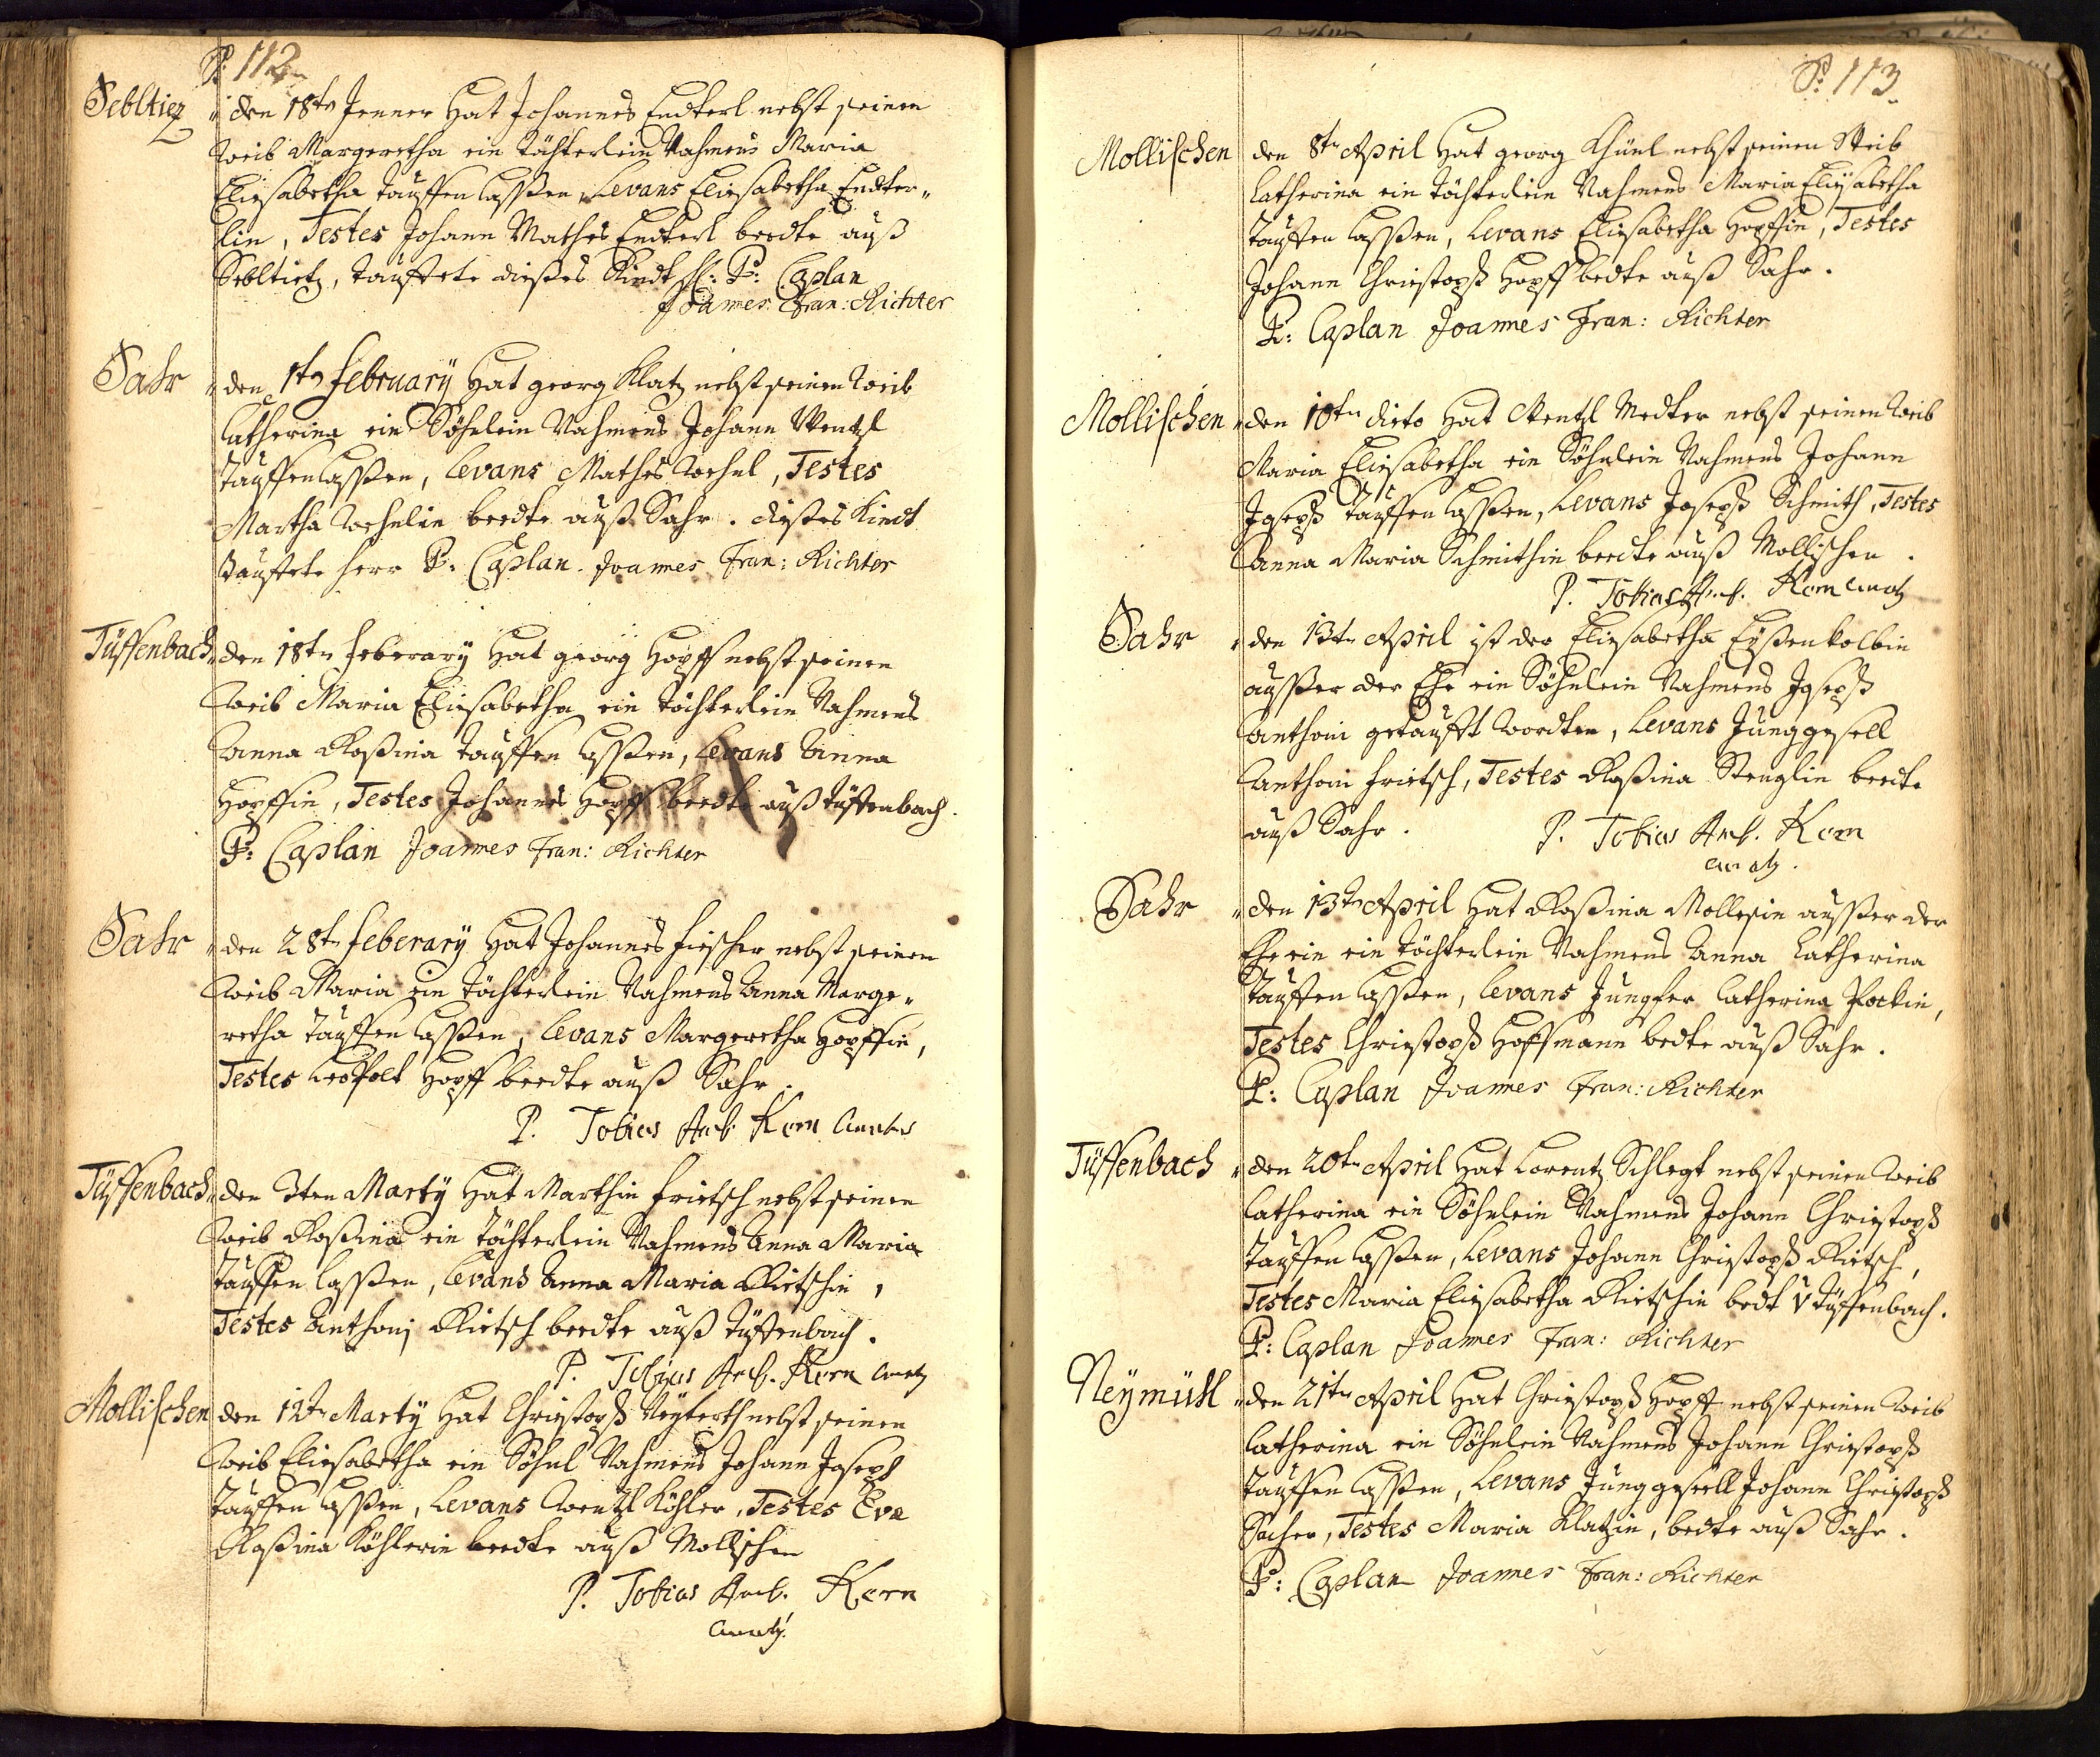 P. 112
Sebltiez
den 18tn Jenner Hat Johannes Endterl nebst seinen
Weib Margeretha ein Töchterlein Nahmens Maria
Eliesabetha Tauffen lassen, Levans Eliesabetha Endter„
lin, Testes Johann Mathes Endterl beedte auß
Sebltietz, Tauffete dießes Kindt H: P: Caplan
Joannes Fran: Richter
Sahr
den 1tn February Hat georg Klatz nebst seinen Weib
Catherina ein Söhnlein Nahmens Johann Wentzl
Tauffen lassen, Levans Mathes, Testes
Martha beedte auß Sahr. dießes Kindt
Tauffete Herr P: Caplan. Joannes Fran: Richter
Tüffenbach
den 18tn Feberary Hat georg Hopff nebst seinen
Weib Maria Eliesabetha ein Töchterlein Nahmens
Anna Roßina Tauffen lassen, Levans Anna
Hopffin, Testes Johannes Hopff beedte auß Tüffenbach.
P: Caplan Joannes Fran: Richter
Sahr
den 28tn Feberary Hat Johannes Fiescher nebst seinen
Weib Maria ein Töchterlein Nahmens Anna Marge„
retha Tauffen lassen, Levans Margeretha Hopffin,
Testes Leopolt Hopff beedte auß Sahr.
P. Tobias Amb. Korn
Tüffenbach
den 3ten Marty Hat Marthin Frietsch nebst seinen
Weib Roßina ein Töchterlein Nahmens Anna Maria
Tauffen lassen, Levans Anna Maria Rietschin,
Testes Anthonj Rietsch beedte auß Tüffenbach.
P. Tobias Amb. Korn
Mollischen
den 12tn Marty Hat Christoph nebst seinen
Weib Eliesabetha ein Söhnl Nahmens Johann Joseph
Tauffen lassen, Levans Wentzl Köhler, Testes Eva
Roßina Köhlerin beedte auß Mollischen
P. Tobias Amb. Korn
P: 113.
Mollischen
den 8tn April Hat georg Khünl nebst seinen Weib
Catherina ein Töchterlein Nahmens Maria Eliesabetha
Tauffen lassen, Levans Eliesabetha Hopffin, Testes
Johann Christoph Hopff bedte auß Sahr.
P: Caplan Joannes Fran: Richter
Mollischen
den 10tn dieto Hat Wentzl Medter nebst seinen Weib
Maria Eliesabetha ein Söhnlein Nahmens Johann
Joseph Tauffen lassen, Levans Joseph Schmith, Testes
Anna Maria Schmithin beedte auß Mollischen.
P. Tobias Amb. Korn
Sahr
den 13tn April ist der Eliesabetha Eyßenkolbin
ausser der Ehe ein Söhnlein Nahmens Joseph
Anthoni getaufft wordten, Levans Junggesell
Anthoni Frietsch, Testes Roßina Stenglin beedte
auß Sahr.
P. Tobias Amb. Korn
Sahr
den 13tn April Hat Roßina Mollesin ausser der
Ehe ein ein Töchterlein Nahmens Anna Catherina
Tauffen lassen, Levans Jungfer Catherina Pockin,
Testes Christoph Hoffmann bedte auß Sahr.
P: Caplan Joannes Fran: Richter
Tüffenbach
den 20tn April Hat Lorentz Schlegt nebst seinen Weib
Catherina ein Söhnlein Nahmens Johann Christoph
Tauffen lassen, Levans Johann Christoph Rietsch,
Testes Maria Eliesabetha Rietschin bedt v Tüffenbach.
P: Caplan Joannes Fran: Richter
Neymühl
den 21tn April Hat Christoph Hopff nebst seinen Weib
Catherina ein Söhnlein Nahmens Johann Christoph
Tauffen lassen, Levans Junggesell Johann Christoph
Sacher, Testes Maria Klatzin, bedte auß Sahr.
P: Caplan Joannes Fran: Richter